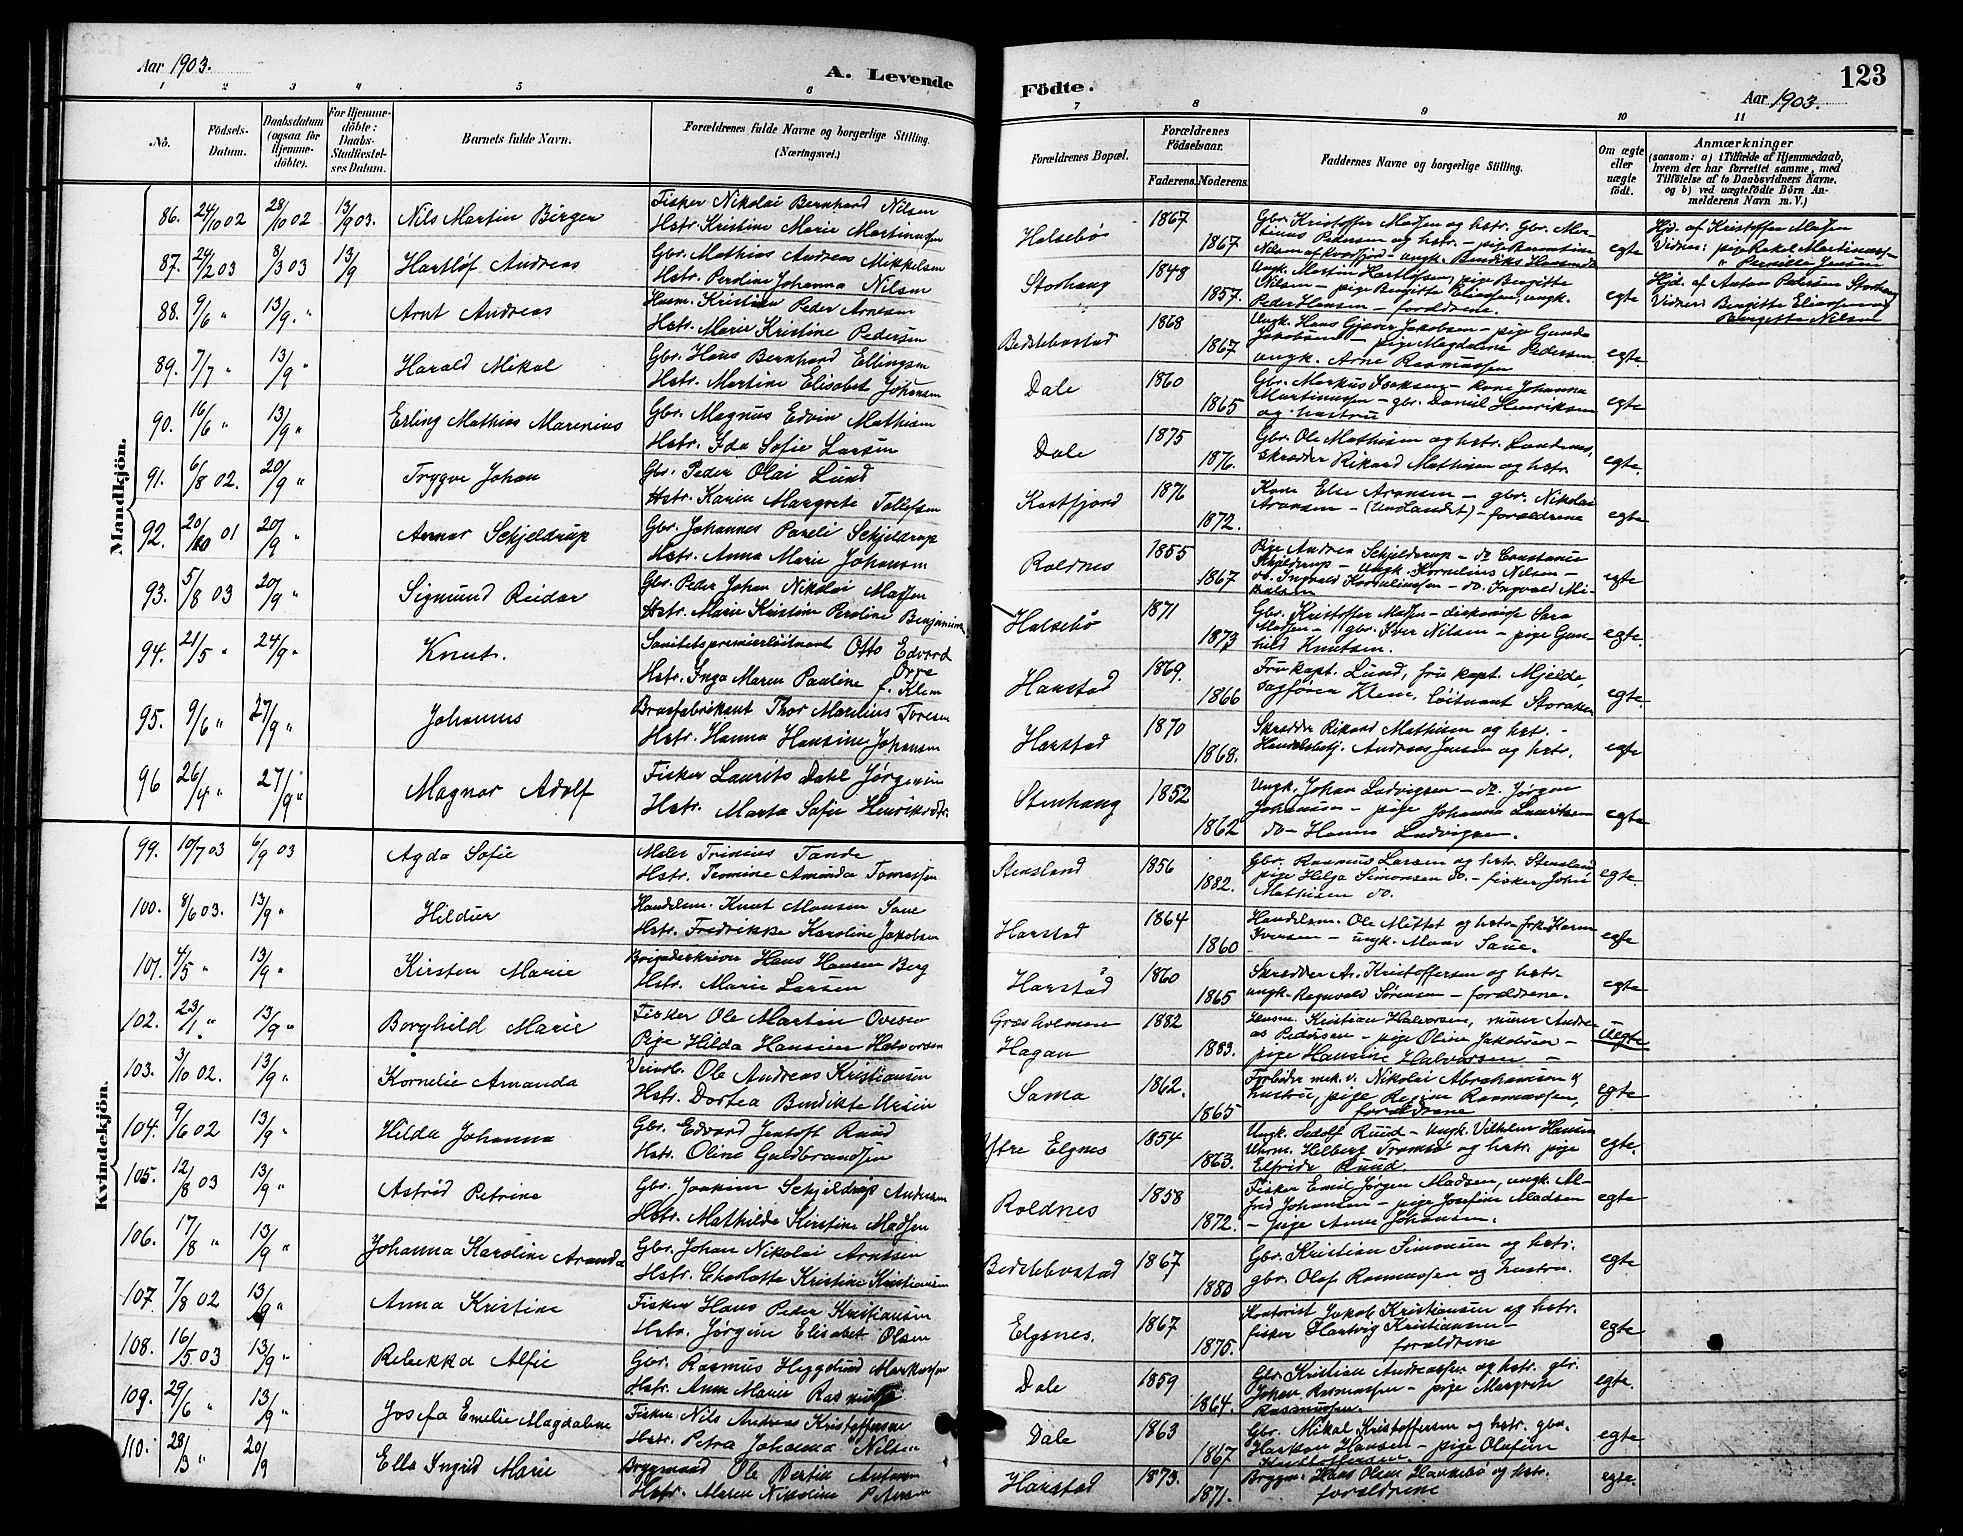 Aar 1903.
A. Levende
1 2 3 4 5 6
No.
Födsels-
Datum.
Daabsdatum
(ogsaa for
Hjemme-
döbte).
For Hjemme-
döbte:
Daabs-
Stadfæstel-
ses Datum.
Barnets fulde Navn.
Forældrenes fulde Navne og borgerlige Stilling.
(Næringsvei.)
Mandkjön.
86. 24/10 02 28/10 02 13/9 03. Nils Martin Birger
Fisker Nikolai Bernhard Nilsen
Hstr. Kristine Marie Martinussen
87. 24/2 03 8/3 03 13/9 Hartløf Andreas
Gbr. Mathias Andreas Mikkelsen
Hstr. Perdine Johanna Nilsen
88. 9/6 " 13/9 " Arnt Andreas
Husm. Kristian Peder Arnesen
Hstr. Marie Kristine Pedersen
89. 7/7 " 13/9 " Harald Mikal
Gbr. Hans Bernhard Ellingsen
Hstr. Martine Elisabet Johansen
90. 16/6 " 13/9 " Erling Mathias Marenius
Gbr. Magnus Edvin Mathisen
Hstr. Ida Sofie Larsen
91. 6/8 02. 20/9 " Trygve Johan
Gbr. Peder Olai Lund
Hstr. Karen Margrete Tollefsen
92. 20/10 01 20/9 " Annar Schjeldrup
Gbr. Johannes Pareli Schjeldrup
Hstr. Anna Marie Johansen
93. 5/8 03 20/9 " Sigmund Reidar
Gbr. Peder Johan Nikolai Massen
Hstr. Marie Kristine Peroline Benjaminsen
94. 21/5 " 24/9 " Knut.
Sanitetspremierløitnant Otto Edvard
Orre
Hstr. Inga Maren Pauline f. Klem
95. 9/6 " 27/9 " Johannes
Brusfabrikant Thor Marelius Toresen
Hstr. Hanna Hansine Johansen
96 26/4 " 27/9 " Magnar Adolf
Fisker Laurits Dahl Jørgensen
Hstr. Marta Sofie Henriksdtr.
Kvindekjön.
99. 10/7 03 6/9 03 Agda Sofie
Maler Trinius Tande
Hstr. Termine Amanda Tomassen
100. 8/6 03. 13/9 " Hildur
Handelsm. Knut Monsen Saue
Hstr. Fredrikke Karoline Jakobsen
101. 4/5 " 13/9 " Kirsten Marie
Brigadeskriver Hans Hansen Berg
Hstr. Marie Larsen
102. 23/1 " 13/9 " Borghild Marie
Fisker Ole Martin Ovesen
Pige Hilda Hansine Halvorsen
103. 3/10 02. 13/9 " Kornelie Amanda
Ole Andreas Kristiansen
Hstr. Dortea Bendikte Ursin
104. 9/6 02 13/9 " Hilda Johanna
Gbr. Edvard Jentoft Ruud
Hstr. Oline Guldbrandsen
105. 12/8 03 13/9 " Astrid Petrine
Gbr. Joakim Schjeldrup Andersen
Hstr. Mathilde Kirstine Madsen
106. 17/8 " 13/9 " Johanna Karoline Amanda
Gbr. Johan Nikolai Arntsen
Hstr. Charlotte Kristine Kristiansen
107 7/8 02 13/9 " Anna Kristine
Fisker Hans Peder Kristiansen
Hstr. Jørgine Elisabet Olsen
108. 16/5 03 13/9 " Rebekka Alfie
Gbr. Rasmus Heggelund Markussen
Hstr. Anne Marie
109. 29/6 " 13/9 " Josefa Emelie Magdalene
Fisker Nils Andreas Kristoffersen
Hstr. Petra Johanna Nilsen
110. 28/3 " 20/9 Ella Ingrid Marie
Bryggmand Ole Bertin Antonsen
Hstr. Maren Nikoline Petersen
Födte.
123
Aar 1903.
7 8 9 10 11
Forældrenes Bopæl.
Forældrenes
Födselsaar.
Faderens. Moderens.
Faddernes Navne og borgerlige Stilling.
Om ægte
eller
uægte
födt.
Anmærkninger
(saasom: a) i Tilfælde af Hjemmedaab,
hvem der har forrettet samme, med
Tilföielse af to Daabsvidners Navne,
og b) ved uægtefödte Börn An-
melderens Navn m. V.)
Halsebø 1867 1867
Gbr. Kristoffer Massen og hstr. Gbr. Mar-
tinus Pedersen og hstr. – pige Berntine
Nilsen af Kvæfjord – ungk. Bendiks Hansen egte
Hjd. af Kristoffer Massen
Vidner: pige Rakel Martinussen
" Pernille Jensen
Storhaug 1848 1857.
Ungk. Martin Hartløfsen, pige Bergitte
Nilsen – pige Bergitte Eliassen, ungk.
Peder Hansen – forældrene. egte
Hjd. af Anton Petersen Storhaug
Vidner: Bergitte Eliassen og
Bergitte Nilsen
Beldstebostad 1868 1867
Ungk. Hans Gjæver Jakobsen – pige Gunda
Jakobsen – pige Magdalene Pedersen
ungk. Arne Rasmussen egte
Dale 1860 1865
Gbr. Markus Isaksen – kone Johanna
Martinussen – gbr. Daniel Henriksen
og hustru egte
Dale 1875 1876.
Gbr. Ole Mathisen og hstr. Sandnes,
skrædder Rikard Mathisen og hstr. egte.
Kastfjord 1876 1872.
Kone Else Aronsen – gbr. Nikolai
Aronsen – (Undlandet) – forældrene egte
Roldnes 1855 1867
Pige Andrea Schjelderup – do Constanse
Schjelderup – Ungk. Kornelius Nilsen –
do. Ingvald Korneliussen – do. Ingvald Mi-
kalsen egte
Halsebø 1871 1873
Gbr. Kristoffer Massen – diskonisse Sara
Massen – gbr. Iver Nilsen – pige Gun-
hild Knutsen. egte.
Harstad 1869. 1866
Fru kapt. Lund, fru kapt. Mjelde,
sagfører Klem, løitnant Storaker egte.
Harstad 1870 1868.
Skrædder Rikard Mathisen og hstr. –
Handelsbetj. Andreas Jensen og hstr. egte
Stenhaug 1852 1862
Ungk. Johan Ludvigsen – do. Jørgen
Johansen – pige Johanna Lauritsen
do – Hanna Ludvigsen. egte
Stensland 1856 1882.
Gbr. Rasmus Larsen og hstr. Stensland
pige Helga Simonsen do. – fisker Johs
Mathisen do. egte
Harstad 1864 1860
Handelsm. Ole Mettet og hstr. frk. Karen
Iversen – ungk. Saue. egte
Harstad 1860 1865
Skrædder Ar. Kristoffersen og hstr.
ungk. Ragnvald Sørensen – forældrene. egte
Græsholmen
Hagan 1882 1883.
Husm. Kristian Halvorsen, murer Andre-
as Pedersen – pige Oline Jakobsen –
pige Hansine Halvorsen – uegte
Sama 1862. 1865
Nikolai Abrahamsen &
hustru, pige Regine Rasmussen,
forældrene egte
Ytre Elgnes 1854 1863.
Ungk. Sedolf Ruud – Ungk. Vilhelm Hansen
Uhrm. Helberg Tromsø og hstr. pige
Elfride Ruud. egte.
Roldnes 1858 1872.
Fisker Emil Jørgen Madsen, ungk. Al-
fred Johansen – pige Josefine Madsen
– pige Anne Johansen. egte
Beldstebostad 1867 1880
Gbr. Kristian Simonsen og hstr.
gbr. Olaf Rasmussen og hustru. egte
Elgsnes. 1867 1875.
Kontorist Jakob Kristiansen og hstr.
fisker Hartvig Kristiansen –
forældrene egte
Dale 1859 1864.
Gbr. Kristian Andreassen og hstr. gbr.
Johan Rasmussen – pige Margrete
Rasmussen. egte.
Dale 1863 1867
Gbr. Mikal Kristoffersen og hstr. gbr.
Haakon Hansen – pige Olufine
Kristoffersen egte
Harstad 1873. 1871.
Bryggm. Hans Olsen og hstr.
forældrene egte.